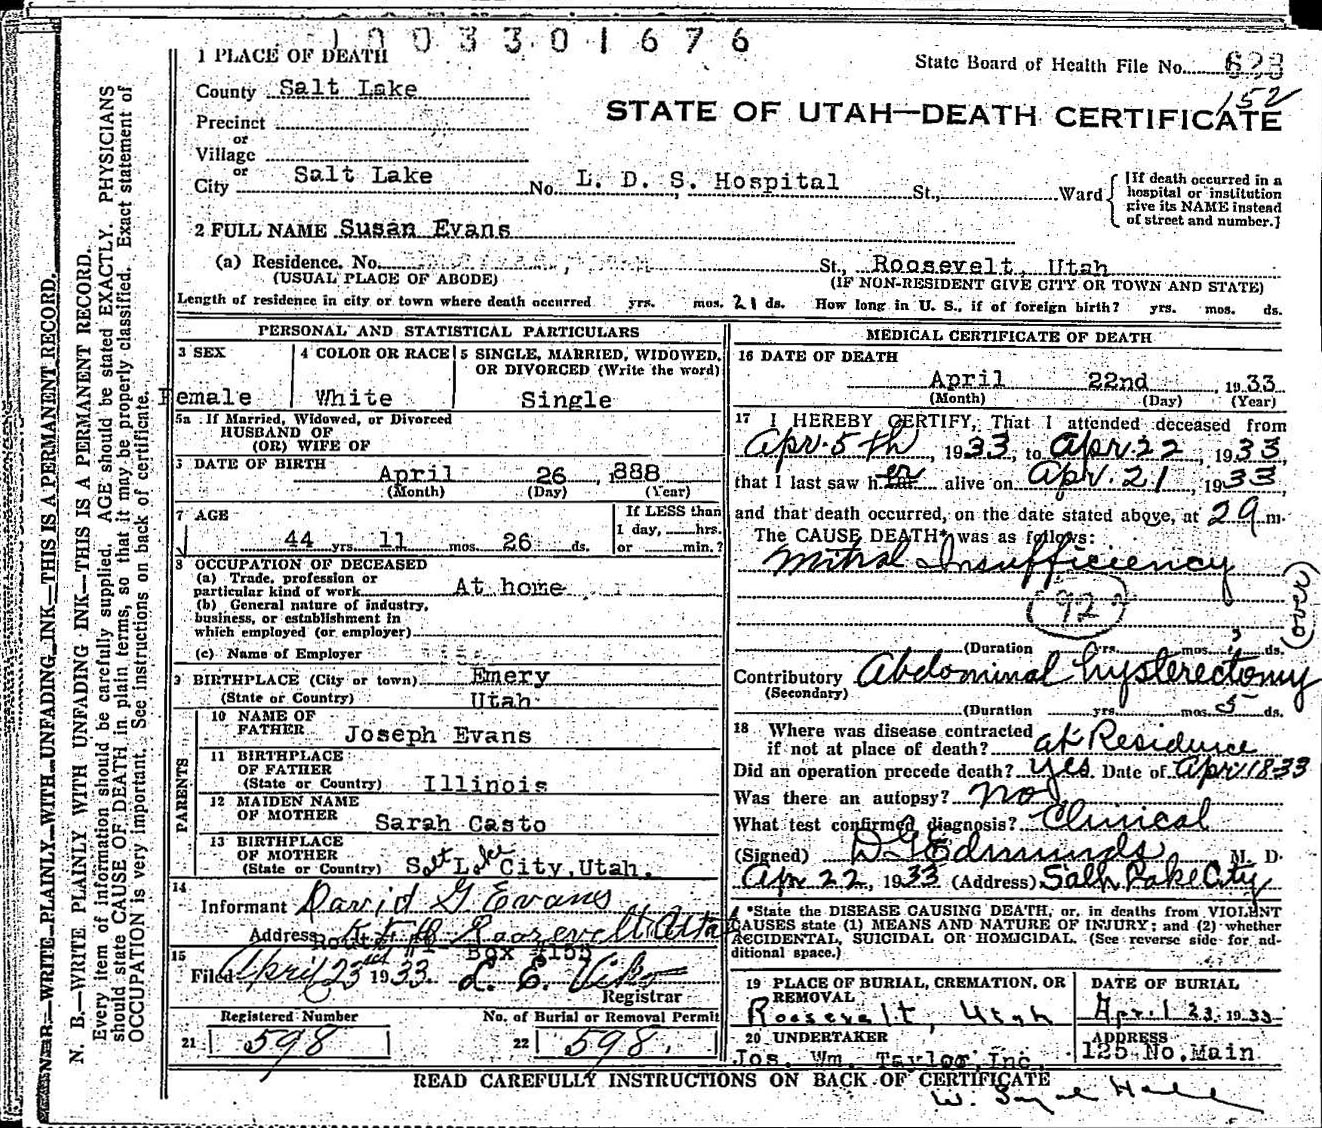 1003301676
1 PLACE OF DEATH
State Board of Health File No. 623
152
County Salt Lake
STATE OF UTAH—DEATH CERTIFICATE
Precinct
or
Village
or
City Salt Lake No. L. D. S. Hospital St., Ward
[If death occurred in a
hospital or institution
give its NAME instead
of street and number.]
2 FULL NAME Susan Evans
(a) Residence. No. St., Roosevelt, Utah
(USUAL PLACE OF ABODE) (IF NON-RESIDENT GIVE CITY OR TOWN AND STATE)
Length of residence in city or town where death occurred yrs. mos. 21 ds. How long in U. S., if of foreign birth? yrs. mos. ds.
PERSONAL AND STATISTICAL PARTICULARS
3 SEX
Female
4 COLOR OR RACE
White
5 SINGLE, MARRIED, WIDOWED,
OR DIVORCED (Write the word)
Single
5a If Married, Widowed, or Divorced
HUSBAND OF
(OR) WIFE OF
DATE OF BIRTH April 26 , 1888
(Month) (Day) (Year)
7 AGE
44 yrs. 11 mos. 26 ds.
If LESS than
1 day, hrs.
or min.?
8 OCCUPATION OF DECEASED
(a) Trade, profession or
particular kind of work At home
(b) General nature of industry,
business, or establishment in
which employed (or employer)
(c) Name of Employer
9 BIRTHPLACE (City or town) Emery
(State or Country) Utah
PARENTS
10 NAME OF
FATHER Joseph Evans
11 BIRTHPLACE
OF FATHER
(State or Country) Illinois
12 MAIDEN NAME
OF MOTHER Sarah Casto
13 BIRTHPLACE
OF MOTHER
(State or Country) Salt Lake City, Utah.
14
Informant David G Evans
Address Roosevelt Utah
Route #1 Box #155
15
Filed April 23 1933. L. E. Viko
Registrar
Registered Number No. of Burial or Removal Permit
21 598 22 598
MEDICAL CERTIFICATE OF DEATH
16 DATE OF DEATH
April 22nd , 1933
(Month) (Day) (Year)
17 I HEREBY CERTIFY, That I attended deceased from
Apr. 5th , 1933, to Apr. 22 , 1933,
that I last saw her alive on Apr. 21 , 1933,
and that death occurred, on the date stated above, at 2 a m.
The CAUSE DEATH* was as follows:
Mitral Insufficiency
92
(over)
(Duration yrs. mos. ds.
Contributory Abdominal hysterectomy
(Secondary)
(Duration yrs. mos. 5 ds.
18 Where was disease contracted
if not at place of death? at Residence
Did an operation precede death? yes. Date of Apr 18-33
Was there an autopsy? no
What test confirmed diagnosis? Clinical
(Signed) D G Edmunds M. D.
Apr 22, 1933 (Address) Salt Lake City
*State the DISEASE CAUSING DEATH, or, in deaths from VIOLENT
CAUSES state (1) MEANS AND NATURE OF INJURY; and (2) whether
ACCIDENTAL, SUICIDAL OR HOMICIDAL. (See reverse side for ad-
ditional space.)
19 PLACE OF BURIAL, CREMATION, OR
REMOVAL
Roosevelt, Utah
DATE OF BURIAL
April 23 1933
20 UNDERTAKER
Jos. Wm. Taylor, Inc.
ADDRESS
125 No. Main
READ CAREFULLY INSTRUCTIONS ON BACK OF CERTIFICATE
N. B.—WRITE PLAINLY WITH UNFADING INK—THIS IS A PERMANENT RECORD.
N. B.—WRITE PLAINLY WITH UNFADING INK—THIS IS A PERMANENT RECORD.
Every item of information should be carefully supplied. AGE should be stated EXACTLY. PHYSICIANS
should state CAUSE OF DEATH in plain terms, so that it may be properly classified. Exact statement of
OCCUPATION is very important. See instructions on back of certificate.